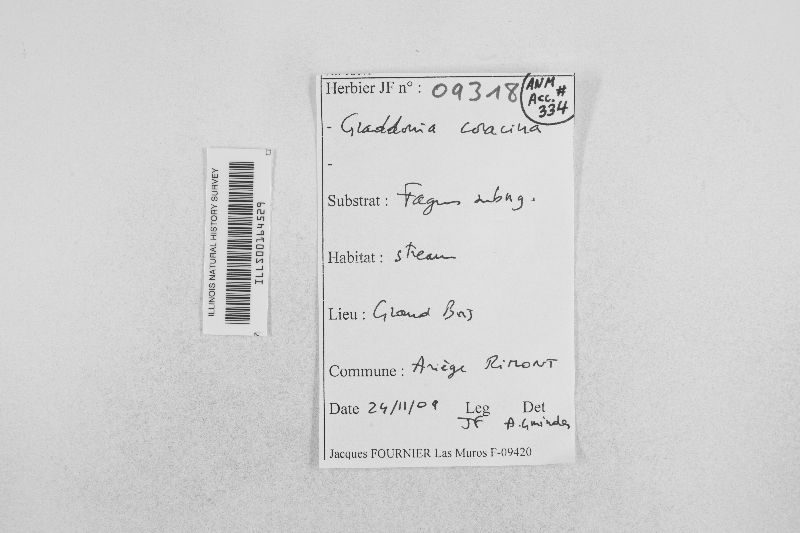 Herbier JF n° : 09318
ANM
Acc. #
334
- Graddonia coracina
-
Substrat : Fagus subug.
Habitat : stream
Lieu : Grand Bois
Commune : Ariège RIMONT
Date 24/11/09 Leg Det
JF A. Gminder
Jacques FOURNIER Las Muros F-09420
ILLINOIS NATURAL HISTORY SURVEY
ILLS00164529